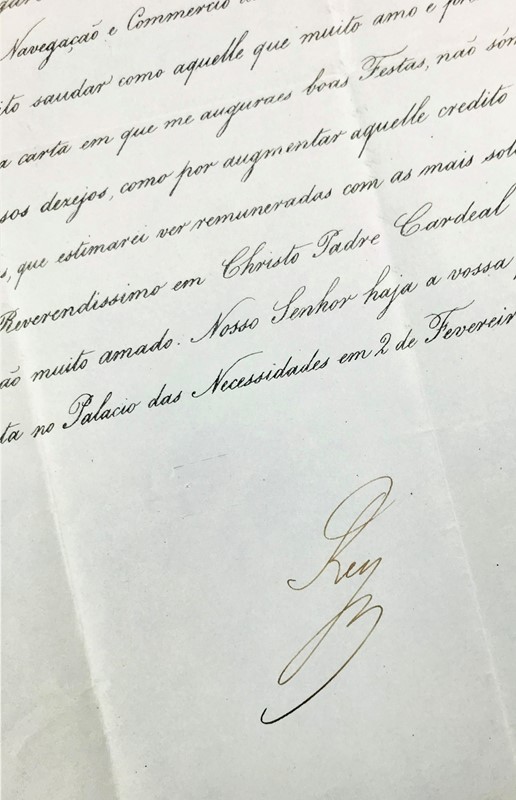 Navegação e Commercio
saudar como aquelle que muito amo e
carta em que me auguraes boas Festas, não
dezejos, como por augmentar aquelle credito
que estimarei ver remuneradas com as mais
Reverendissimo em Christo Padre Cardeal
muito amado. Nosso Senhor haja a vossa
no Palacio das Necessidades em 2 de Fevereir
Rey